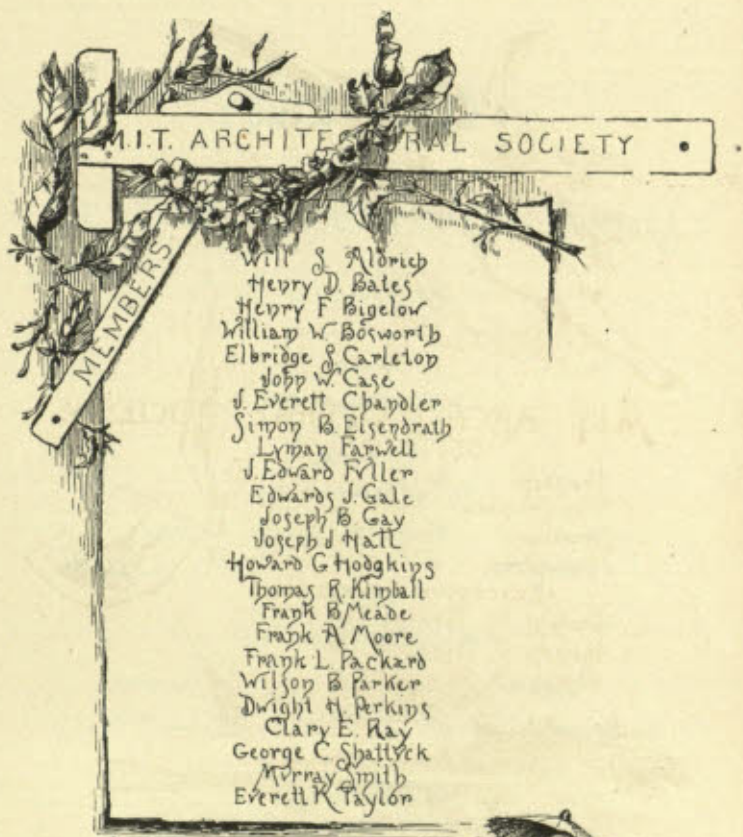 M.I.T. ARCHITECTURAL SOCIETY
MEMBERS
Will S. Aldrich
Henry D. Bates
Henry F Bigelow
William W Bosworth
Elbridge S Carleton
John W. Case
J. Everett Chandler
Simon B. Eisendrath
Lyman Farwell
J. Edward Fuller
Edwards J. Gale
Joseph B. Gay
Joseph J Hatt
Howard G Hodgkins
Thomas R. Kimball
Frank B Meade
Frank A. Moore
Frank L. Packard
Wilson B Parker
Dwight H. Perkins
Clary E. Ray
George C. Shattuck
Murray Smith
Everett K Taylor